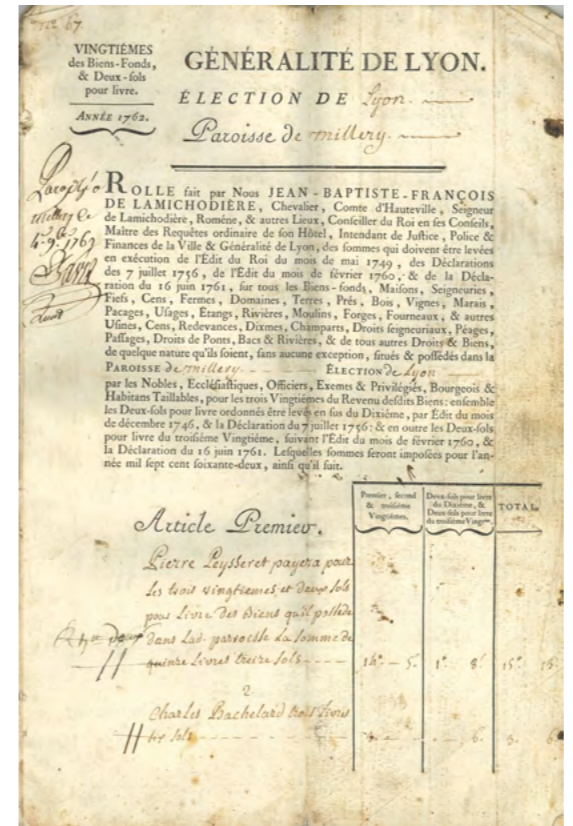 67.
VINGTIÈMES
des Biens-Fonds,
& Deux-sols
pour livre.
ANNÉE 1762.
GÉNÉRALITÉ DE LYON.
ÉLECTION DE Lyon.
Paroisse de millery.
millery Ce
4. 9. 1762
ROLLE fait par Nous JEAN-BAPTISTE-FRANÇOIS
DE LAMICHODIÈRE, Chevalier, Comte d'Hauteville, Seigneur
de Lamichodière, Romène, & autres Lieux, Conseiller du Roi en ses Conseils,
Maître des Requêtes ordinaire de son Hôtel, Intendant de Justice, Police &
Finances de la Ville & Généralité de Lyon, des sommes qui doivent être levées
en exécution de l'Édit du Roi du mois de mai 1749, des Déclarations
des 7 juillet 1756, de l'Édit du mois de février 1760, & de la Décla-
ration du 16 juin 1761, sur tous les Biens-fonds, Maisons, Seigneuries,
Fiefs, Cens, Fermes, Domaines, Terres, Prés, Bois, Vignes, Marais,
Pacages, Usages, Étangs, Rivières, Moulins, Forges, Fourneaux, & autres
Usines, Cens, Redevances, Dixmes, Champarts, Droits seigneuriaux, Péages,
Passages, Droits de Ponts, Bacs & Rivières, & de tous autres Droits & Biens,
de quelque nature qu'ils soient, sans aucune exception, situés & possédés dans la
PAROISSE de millery ÉLECTION de Lyon
par les Nobles, Ecclésiastiques, Officiers, Exemts & Privilégiés, Bourgeois &
Habitans Taillables, pour les trois Vingtièmes du Revenu desdits Biens: ensemble
les Deux-sols pour livre ordonnés être levés en sus du Dixième, par Édit du mois
de décembre 1746, & la Déclaration du 7 juillet 1756: & en outre les Deux-sols
pour livre du troisième Vingtième, suivant l'Édit du mois de février 1760, &
la Déclaration du 16 juin 1761. Lesquelles sommes seront imposées pour l'an-
née mil sept cent soixante-deux, ainsi qu'il suit.
Premier, second & troisième Vingtièmes.
Deux-sols pour livre du Dixième, & Deux-sols pour livre du troisième Vingtme.
TOTAL.
Article Premier.
Pierre Peysseret payera pour
les trois vingtiemes et deux sols
pour Livre des Biens quil possede
dans Lad. parroisse La somme de
quinze Livres treize sols 14. 5. 1. 8. 15. 13
2
Charles Bachelard trois Livres
six sols 6. 3. 6